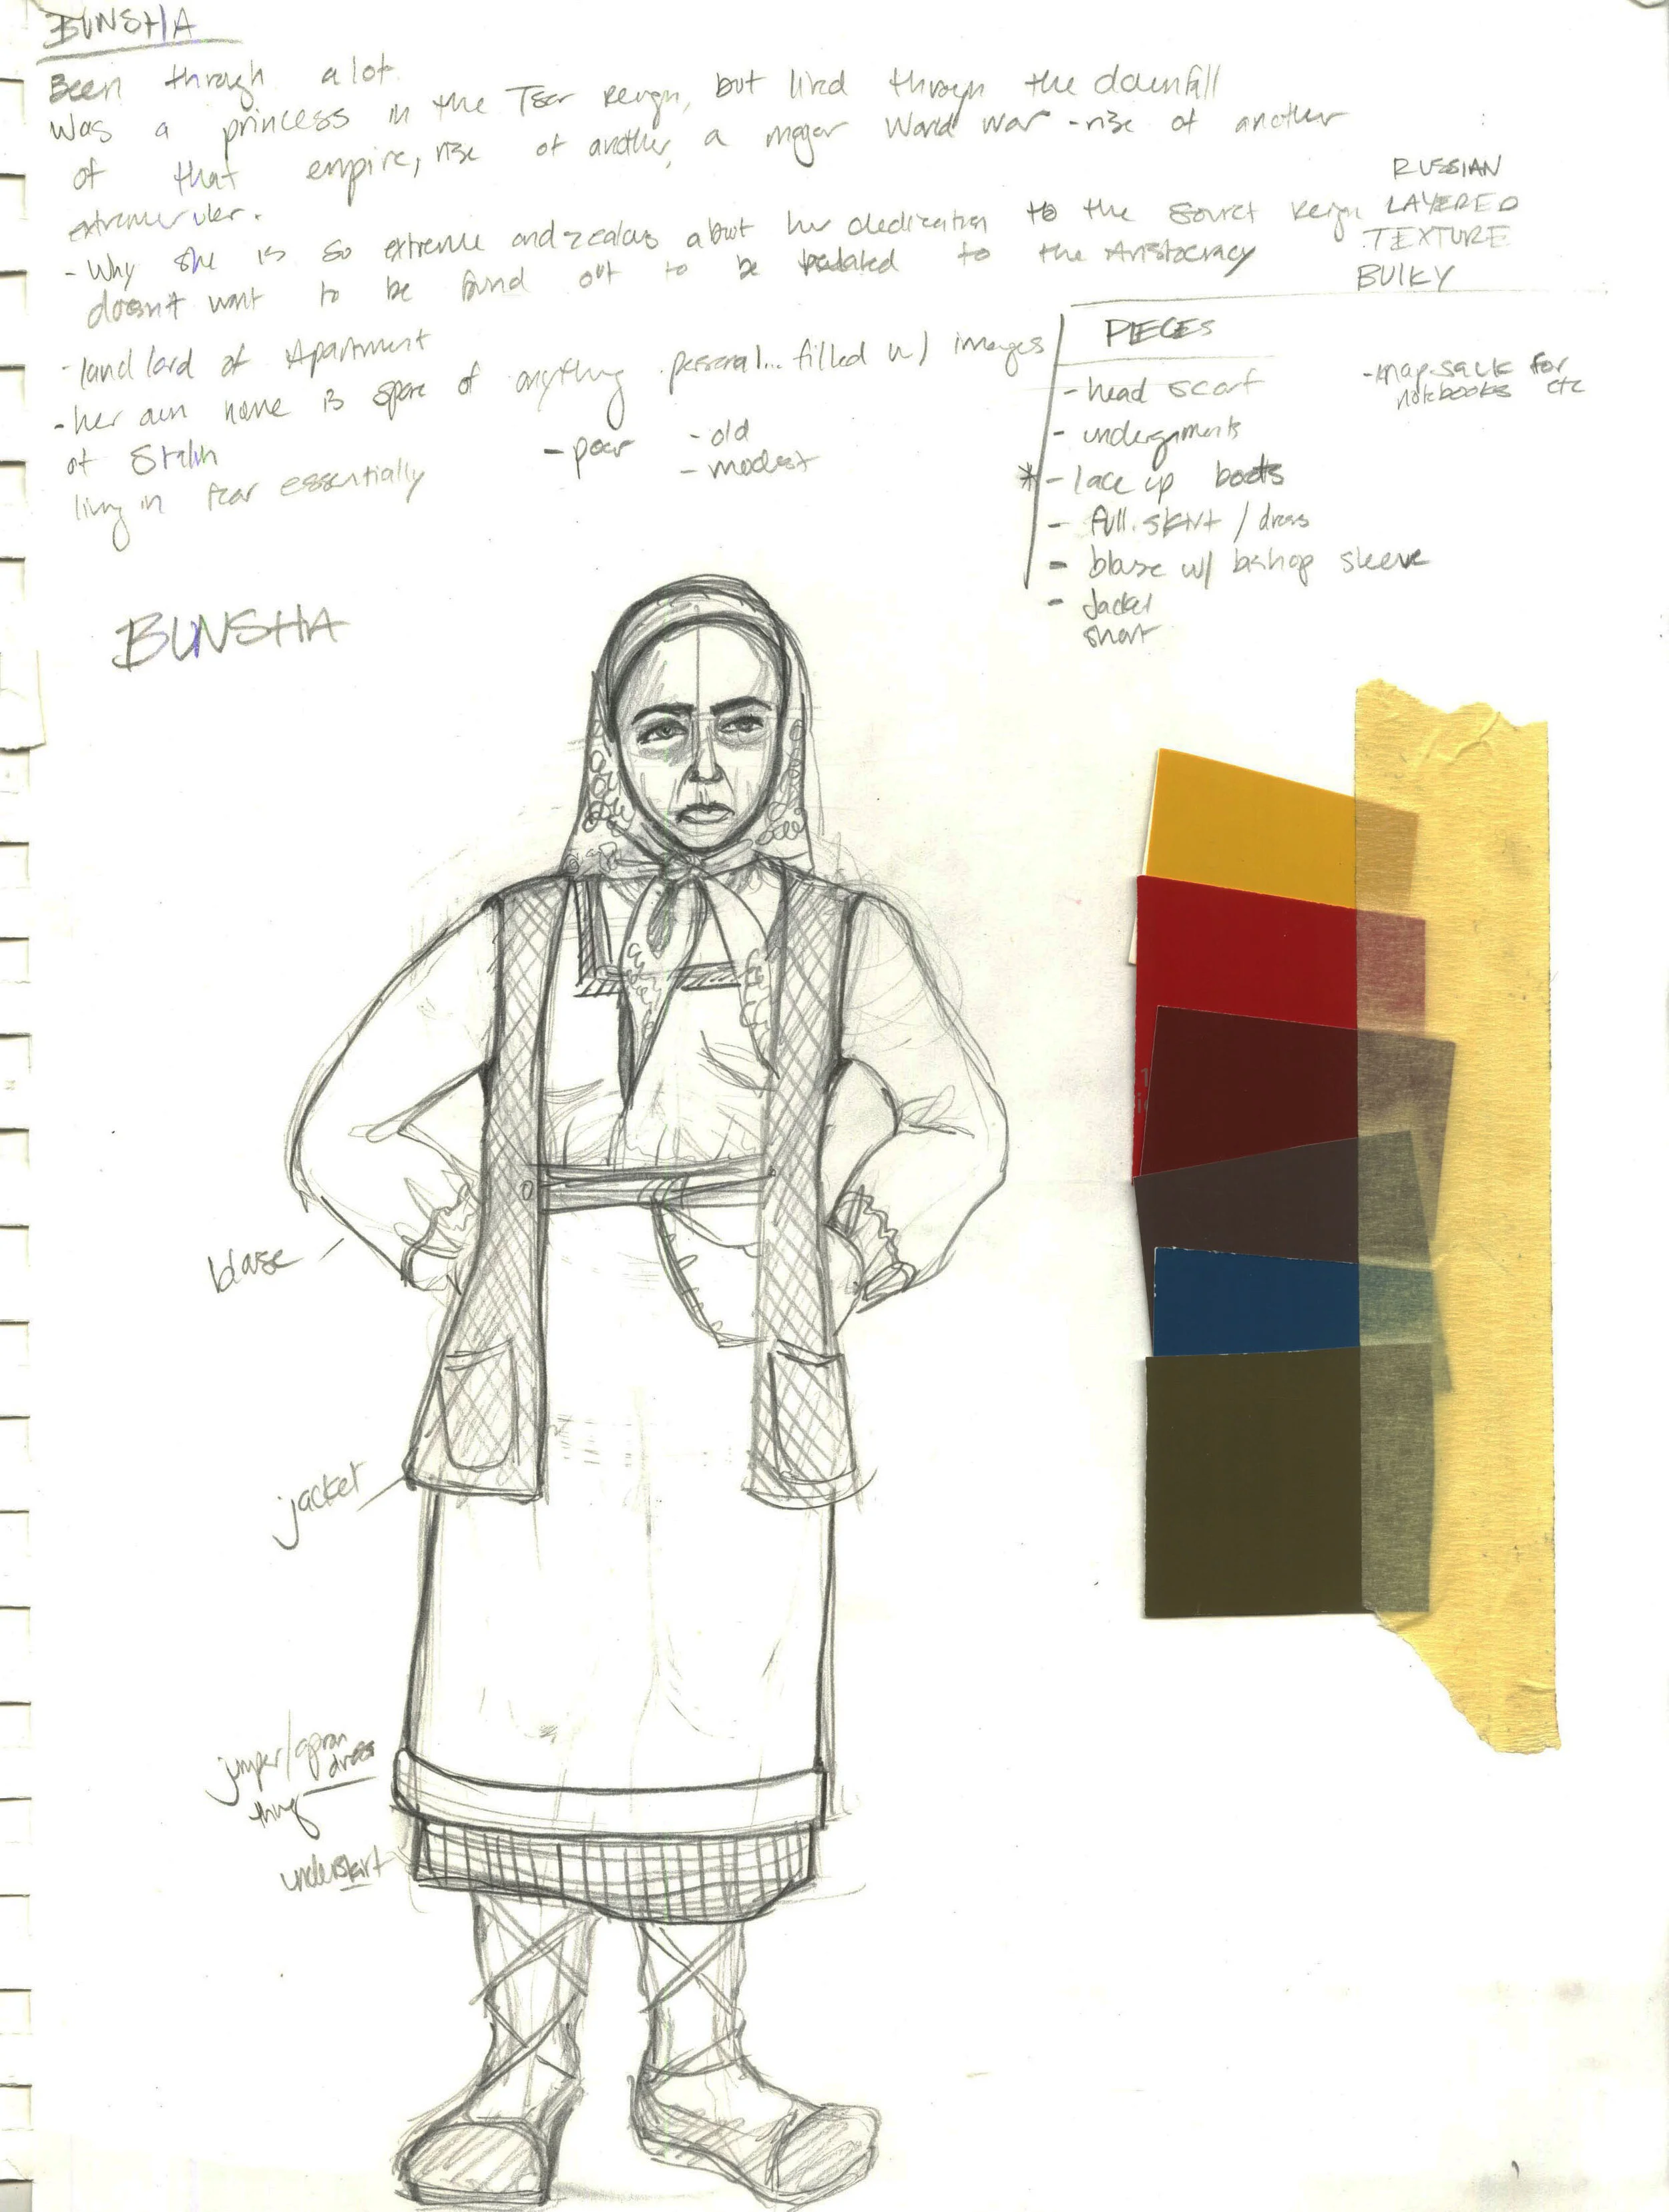 BUNSHA
Been through a lot
Was a princess in the Tsar Reign, but lived through the downfall
of that empire, rise of another, a major World War - rise of another
extreme ruler.
- Why she is so extreme and zealous about her dedication to the Soviet Reign
doesn't want to be found out to be related to the Aristocracy
- land lord of Apartment
- her own home is spare of anything personal... filled w/ images
of Stalin
living in fear essentially
- poor
- old
- modest
RUSSIAN
LAYERED
TEXTURE
BULKY
PIECES
- head scarf
- undergarments
* - lace up boots
- full skirt / dress
- blouse w/ bishop sleeve
- Jacket
short
- knapsack for
notebooks etc
BUNSHA
blouse
jacket
jumper/apron
dress
thing
underskirt